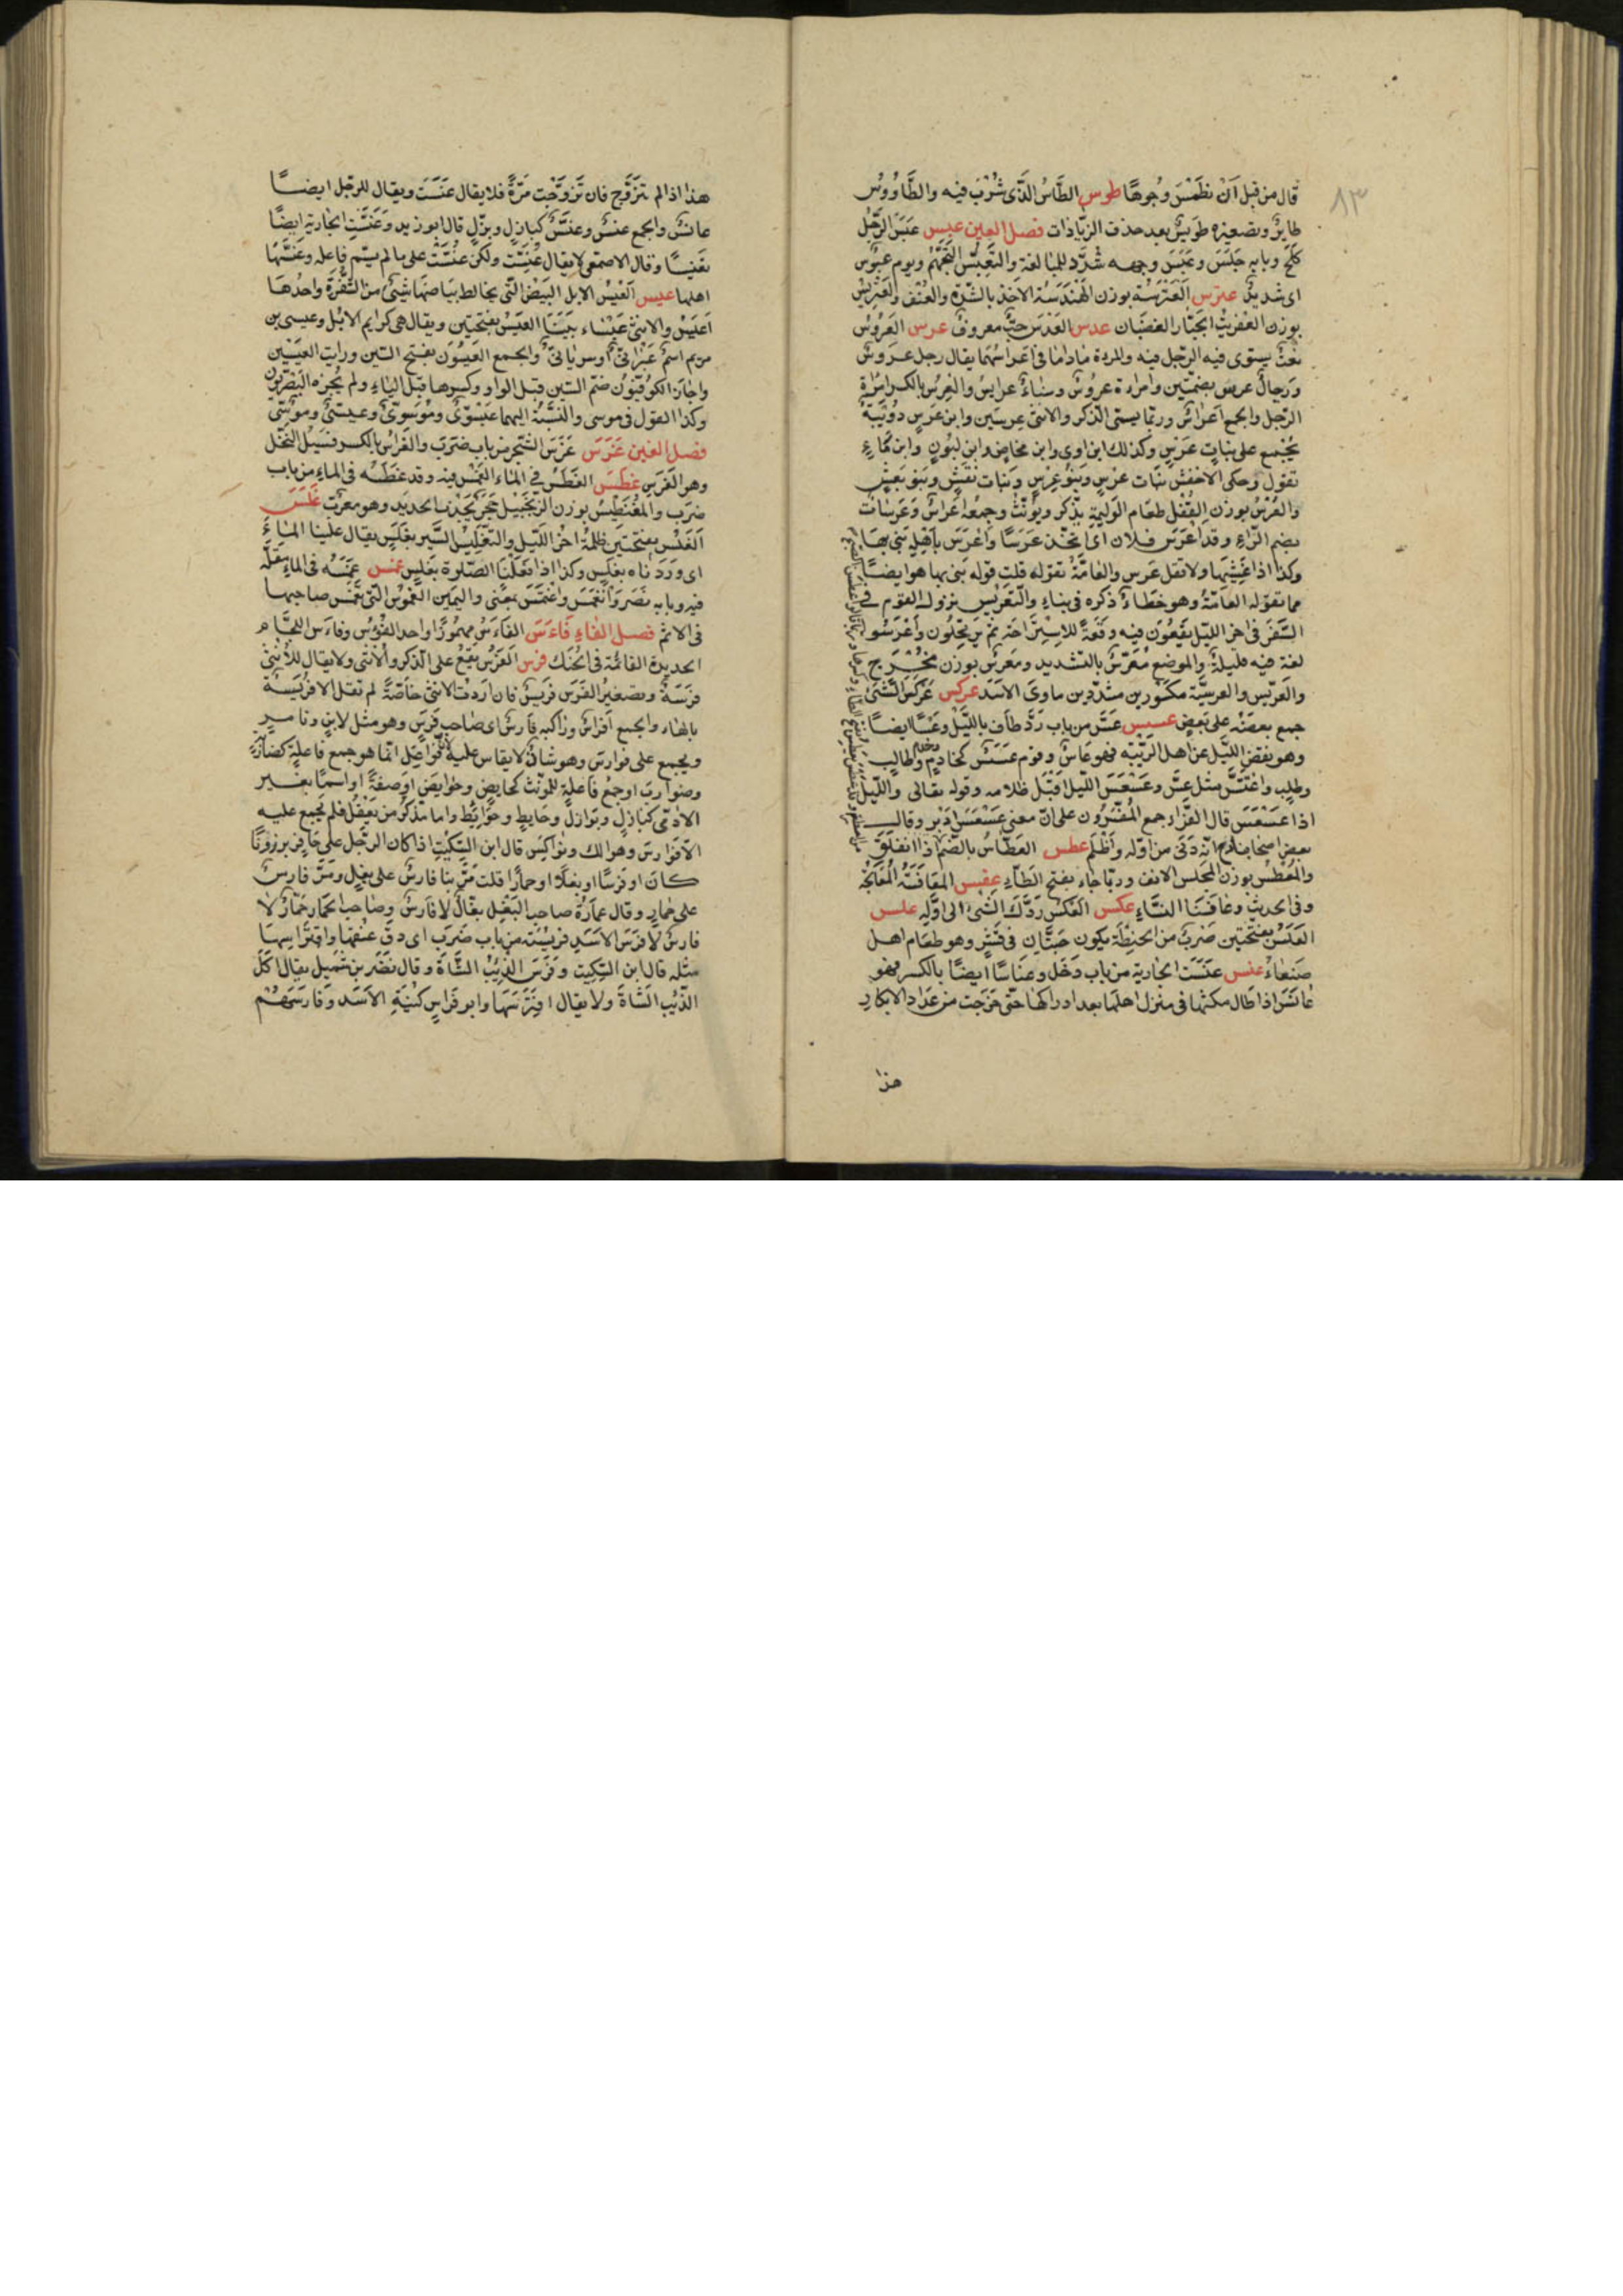 ٨٣
قال من قبل اَنْ نطْمَسَ وُجوهًا طوس الطَّاسُ الَّذى يُشْرَب فيه والطَّاوُوسُ
طايرٌ وتصغيره طوَيسٌ بعد حذف الزّيادات فصل العين عبس عبَسَ الرّجُل
كَلَحَ وبابه جَلَسَ وعبَّسَ وجهه شُدّد للمبالغة والتّعبّس التّجَهُّم ويوم عبوُس
اى شديدٌ عترس العَتْرَسَة بوزن الهَنْدَسَة الاَخذ بالشّدّة والعُنْف والعِتْريسُ
بوزن العِفْريتِ الجَبّار الغضبَان عدس العَدَس حَبٌّ معروفٌ عرس العَرُوسُ
نعْتٌ يستوى فيه الرّجل فيه والمرءة ماداما فى اَعراسهمَا يقال رجل عرَوسٌ
ورِجالٌ عرس بضمّتين وامراءة عروسٌ ونساءٌ عرايسُ والعِرسُ بالكسر امرَاة
الرّجل والجمع اَعراسٌ وربّما يسمّى الذّكر والانثى عِرسَين وابن عرسٍ دوُيْبّةٌ
يُجْمع على بناتِ عرْسٍ وكذلك ابن اوى وابن مخاضٍ وابن لبوُنٍ وابن مَاءٍ
تقول وحكى الاخفش بَنَات عرْسٍ وبَنوُ عِرْسٍ وبَنات نعْشٍ وبَنوُ نعَشٍ
والعُرْسُ بوزن القُفْل طعَام الوَليمةِ يذّكر ويؤنّثُ وجمعُه اَعْراسٌ وعُرسَاتٌ
بضم الرّاءِ وقد اَعْرَسَ فلان اى اتّخذ عرسًا واَعْرَسَ باَهْلِه بَنى بهَا
وكذا اذا غَشِيَها ولا تقل عَرس والعَامّةُ تقوله قلت قوله بنى بها هو ايضًا
مما تقوله العامّة وهو خطاءٌ ذكره فى بناءٍ والتّعْريس نزول القوم فى
السَّفَر فى اخر اللّيل يَقَعُوُنَ فيه وَقْعَةً للاِسْتِراحَة ثم يَرتحِلُون وأعْرَسُو
لغة فيه قليلةٌ والموضع مُعَرّسٌ بالتّشديد ومُعرسٌ بوزن مخْرَج
والعِرّيس والعِرّيسَة مكسُورين مشدّدين ماوىَ الاسَد عركس عَرْكسَ الشئ
جمع بعضَهُ على بَعضٍ عسس عَسَّ من باب رَدَّ طاف باللّيْل وعَسًّا ايضًا
وهو نفض اللّيل عن اهل الرّيبَة فهو عَاسٌّ وقوم عَسَسٌ كخادمٍ وخدم وطالِب
وطلَب واعْتَسَّ مثل عسَّ وعَسْعَسَ اللّيل اَقبَل ظلامه وقوله تعالى واللّيل
اذا عَسْعَسَ قال الفرَّا اجمع المُفَسّرُون على انّ معنى عَسْعَسَ اَدْبر وقال
بعض اصحابنا انّه دَنَى من اوّله وأظْلَمَ عطس العُطَاسُ بالضّم اذا انفلَقَ
والمَعْطِسُ بوزن المجلس الانف وربّما جاء بفتح الطّآء عفس المعَافَسَةُ المُعَالجةُ
وفى الحديث وعَافَسْنَا النّسَآءَ عكس العَكْس رَدّك الشئ الى اوّله علس
العَلَسُ بفتحتين ضرْبٌ من الحِنْطَة يكون حَبّتَان فى قِشْرٍ وهو طعَام اهل
صَنعاءَ عنس عَنَسَت الجارية من باب دَخَل وعِنَاسًا ايضًا بالكسر فهو
عَانسٌ اذا طَال مكثها فى منزل اهلهَا بعد ادراكها حتّى خرَجت من عدَاد الابكار
هذا
هذا اذا لم تتزَوّج فان تَزوّجَت مَرّةً فلا يقال عَنَسَت ويقال للرّجل ايضًا
عانسٌ والجمع عنْسٌ وعنَّسٌ كبازِلٍ وبُزّلٍ قال ابو زيد وعَنّسَتِ الجارية ايضًا
تعْنيسًا وقال الاصمعى لا يقال عَنّسَت ولكن عُنّسَتْ على ما لم يسَمّ فاعله وعَنّسَهَا
اهلها عيس العِيسُ الابل البِيْضُ التّى يخالط بيَاضَهَا شئٌ من الشُّقرَة واحدُها
اَعْيَسُ والانثى عَيْسَاء بيّنَا العَيَسِ بفتحَتين ويقال هى كرايم الابُل وعيسى بن
مريم اسمٌ عبْرانىٌّ اوسريانىٌّ والجمع العيسَوُن بفتح السّين ورايت العيسَيْن
واجاز الكوُفيّوُن ضمّ السّين قبل الواو وكسرها قبل اليَاءِ ولم يُجِزه البَصْريّون
وكذا القول فى موسى والنسْبَةُ اليهما عيْسَوِىٌّ وموُسَوىٌّ وعيسىٌّ وموُسىٌّ
فصل الغين غَرَسَ غَرَسَ الشّجَر من باب ضرَبَ والغراسُ بالكسر فسيلُ النّخْل
وهو الغَرس غطس الغَطْسُ فى الماءِ الغَمْس فيه وقد غَطسَه فى الماءِ من باب
ضرَبَ والمِغْنَطِيسُ بوزن الزّنجَبيْل حجَرٌ يَجْذب الحديد وهو معَرّبٌ غَلسَ
الغَلَسُ بفتحتَين ظلمةُ اخر اللّيل والتّغلِيسُ السَّير بغَلسٍ يقال غلسنا المآءَ
اى وَرَدناه بغَلسٍ وكذا اذا فعَلْنَا الصّلوة بغَلسٍ غمس غمَسَه فى الماء مَقَلَه
فيه وبابه ضَرَبَ وانغمَسَ واغتَمَسَ بمعَنى واليَمِين الغَموُس التّى تغْمس صاحبها
فى الاثم فصل الفاءِ فَاءَسَ الفَاءسُ مهموُزًا واحد الفُؤسِ وفاءسُ اللّجَام
الحديدة القائمة فى الحَنَك فرس الفَرَسُ يَقَعُ على الذّكر والاُنثى ولا يقال للاُنثى
فرَسَةٌ وتصغير الفرَس فُرَيسٌ فان اردت الانثى خاصّةً لم تقل الا فُرَيْسَةً
بالهَاء والجمع اَفراسٌ وراكبه فَارسٌ اى صَاحِب فَرَسٍ وهو مثل لابنٍ وتامرٍ
ويجمع على فوارسَ وهو شاذٌّ لا يقاس عليه لانّ فواعل انّما هو جمع فاعلة كضاربةٍ
وضواربَ او جمع فاعلٍ للمونّث كحايضٍ وحوايضَ او صفةً او اسمًا بغير
الادمّى كبَازلٍ وبَوَازلَ وحَايِطٍ وحَوَايِطَ واما مذّكر من يَعقلُ فلم يُجمع عليه
الاّ فوارسَ وهوالك ونواكِسَ قال ابن السّكّيت اذا كان الرّجل على حَافِر برذونًا
كانَ او فرَسًا او بغلًا او حمارًا قلت مَرّ بنا فارسٌ على بغلٍ ومَرّ فارسٌ
على حمارٍ وقال عمَارَةُ صاحب البَغْل بغّالٌ لا فارسٌ وصاحب الحمَار حَمّارٌ لا
فارسٌ لا فرَسَ الاسَد فريسَته من باب ضَرَبَ اى دقّ عنُقها وافتَرَاسهَا
مثله قال ابن السّكيت وفَرَسَ الذّئبُ الشَّاةَ وقال نَضر بن شُمَيل يقال اَكَلَ
الذّئب الشّاةَ ولا يقال افتَرَسَهَا وابو فرَاسٍ كُنْيَةِ الاَسَد وَفَارسَهُمْ